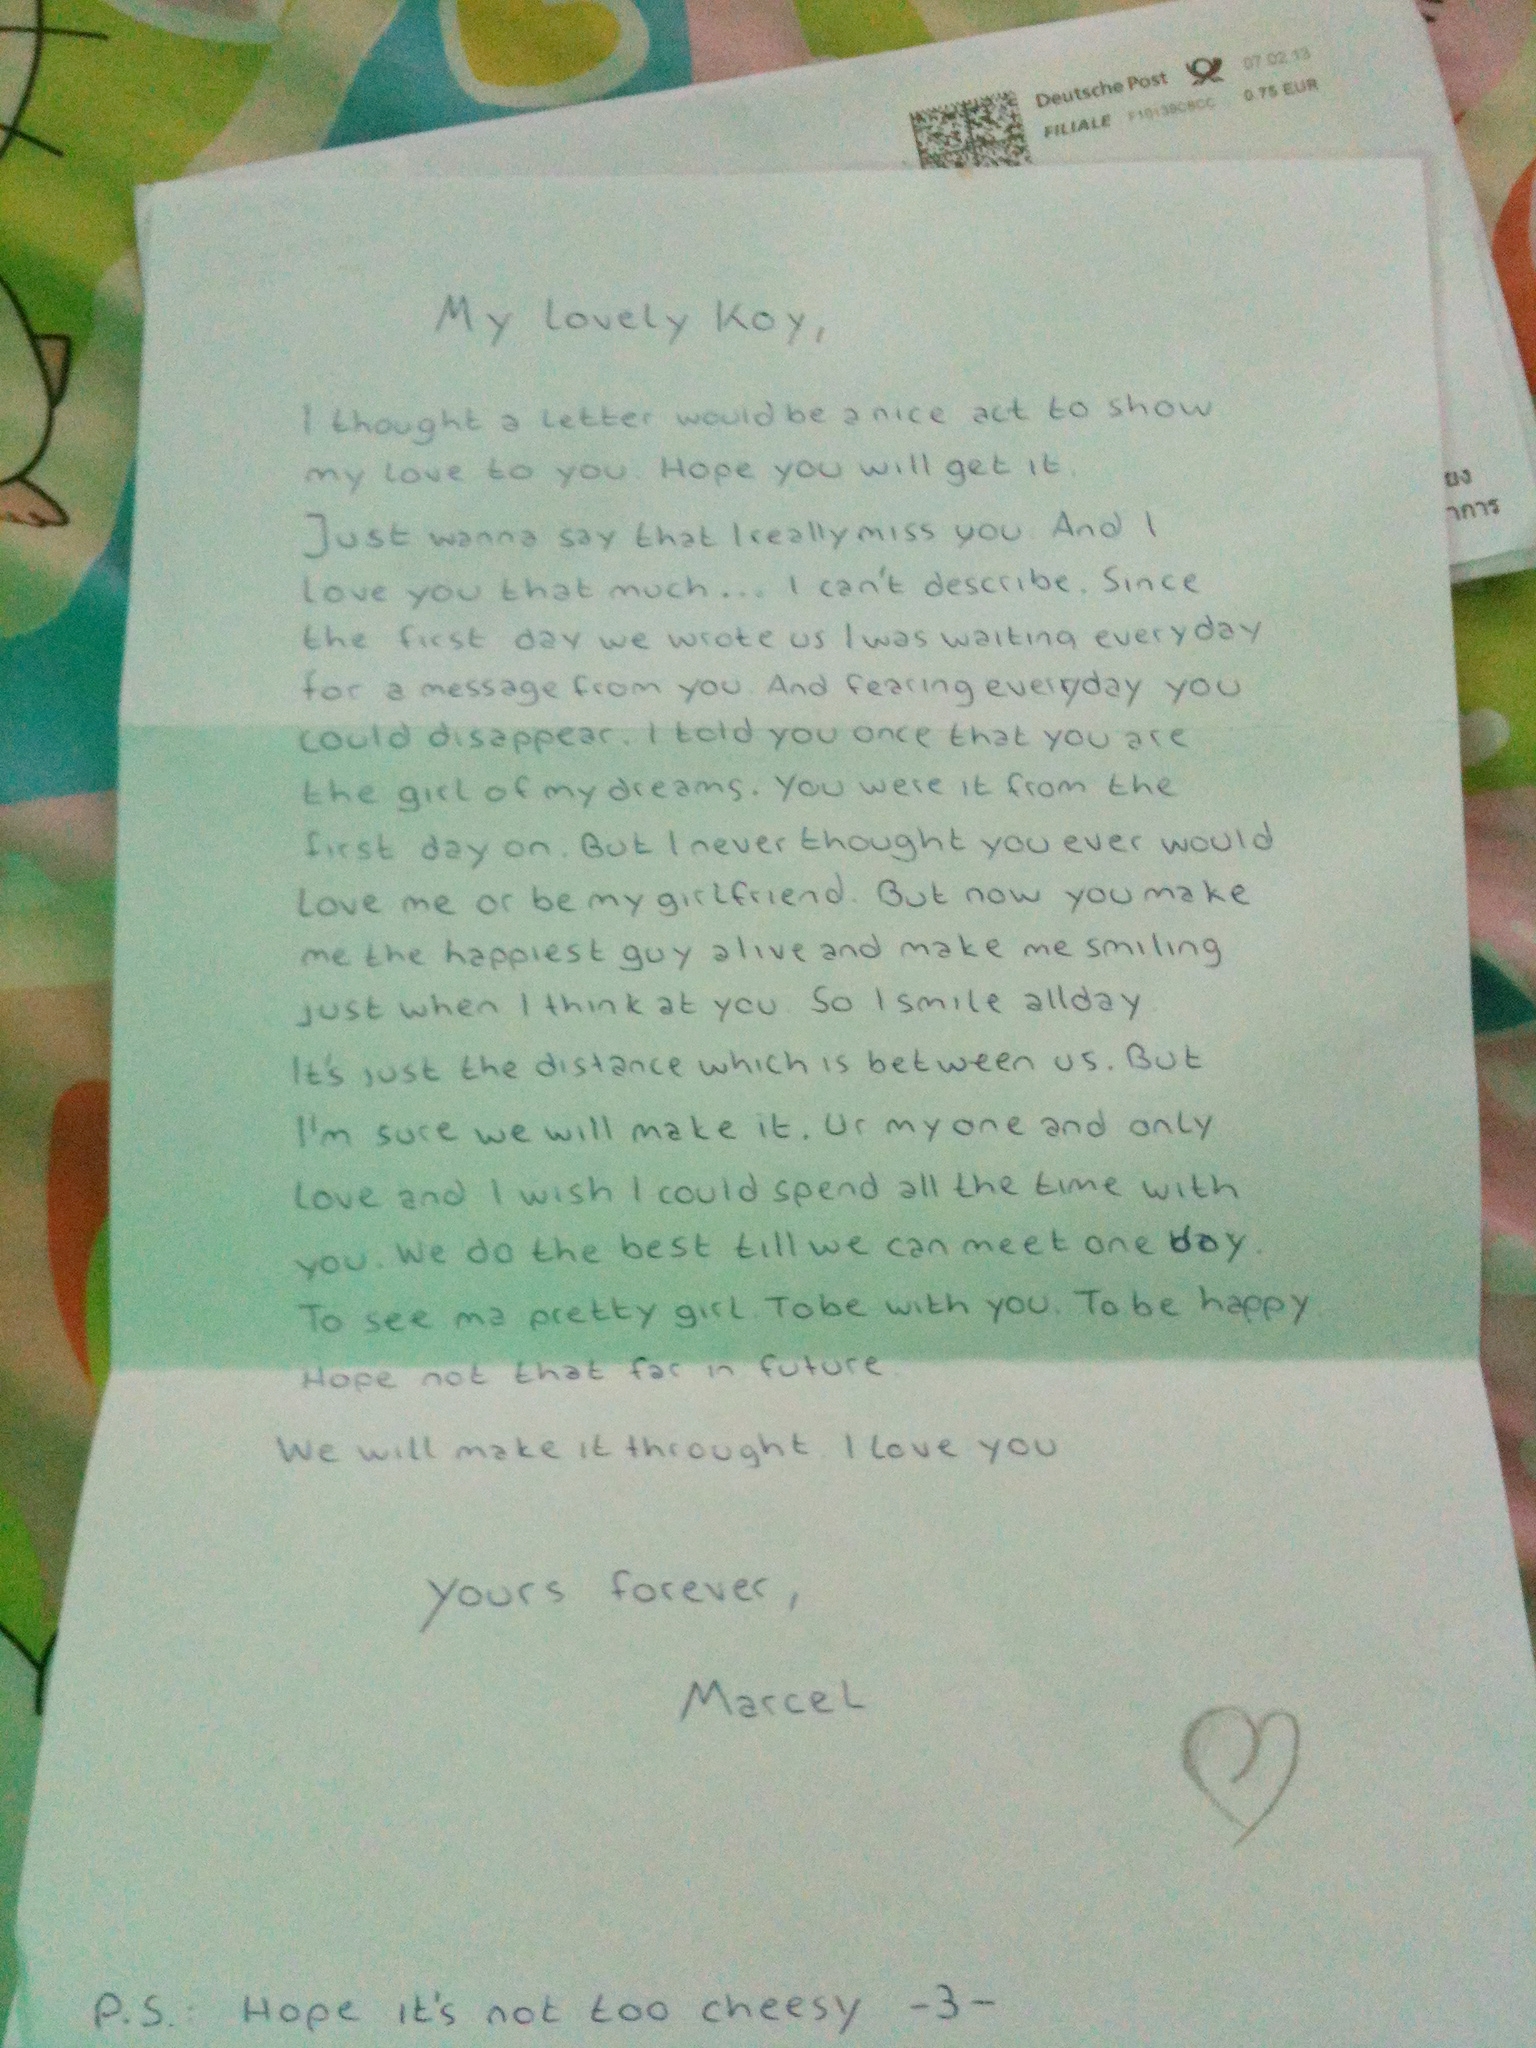 Deutsche Post 07.02.13
FILIALE 0.75 EUR
My lovely Koy,
I thought a letter would be a nice act to show
my love to you. Hope you will get it.
Just wanna say that I really miss you. And I
love you that much... I can't describe. Since
the first day we wrote us I was waiting everyday
for a message from you. And fearing everyday you
could disappear. I told you once that you are
the girl of my dreams. You were it from the
first day on. But I never thought you ever would
love me or be my girlfriend. But now you make
me the happiest guy alive and make me smiling
just when I think at you. So I smile allday.
It's just the distance which is between us. But
I'm sure we will make it. Ur my one and only
love and I wish I could spend all the time with
you. We do the best till we can meet one day.
To see ma pretty girl. To be with you. To be happy.
Hope not that far in future.
We will make it throught. I love you
Yours forever,
Marcel
P.S.: Hope it's not too cheesy -3-